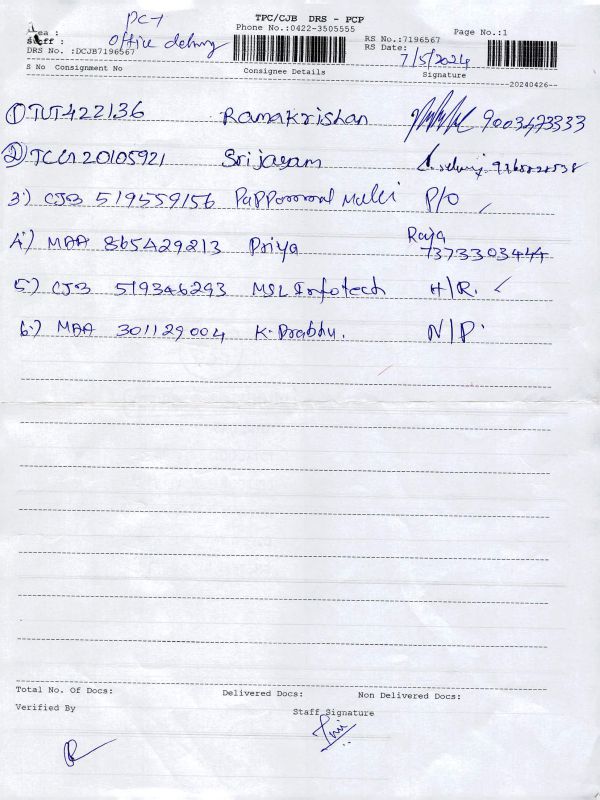 PC-1
TPC/CJB DRS - PCP
Area :
Phone No.:0422-3505555
Page No.:1
Staff :
Office delivery
RS No.:7196567
RS Date:
7/5/2024
DRS No. :DCJB7196567
S No Consignment No
Consignee Details
Signature
20240426
① TUT422136 Ramakrishan 9003473333
② 20105921 Srijayam
3) CJB 519559156 P/O
4) MAA 865429213 Priya Raja
7373303444
5) CJB 519346293 MSL Infotech H/R.
6) MAA 301129004 K. Prabhu. N/P.
Total No. Of Docs: Delivered Docs: Non Delivered Docs:
Verified By
Staff Signature